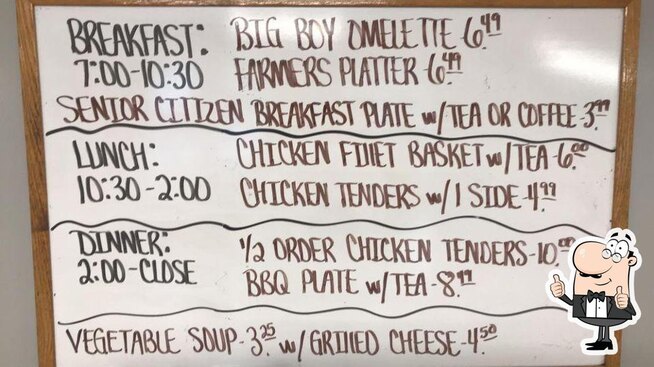 BREAKFAST: BIG BOY OMELETTE 6.49
7:00-10:30 FARMERS PLATTER 6.49
SENIOR CITIZEN BREAKFAST PLATE w/TEA OR COFFEE-3.99
LUNCH: CHICKEN FILLET BASKET w/TEA-6.00
10:30-2:00 CHICKEN TENDERS w/1 SIDE-4.99
DINNER: 1/2 ORDER CHICKEN TENDERS-10.00
2:00-CLOSE BBQ PLATE w/TEA-8.49
VEGETABLE SOUP-3.25 w/GRILLED CHEESE-4.50